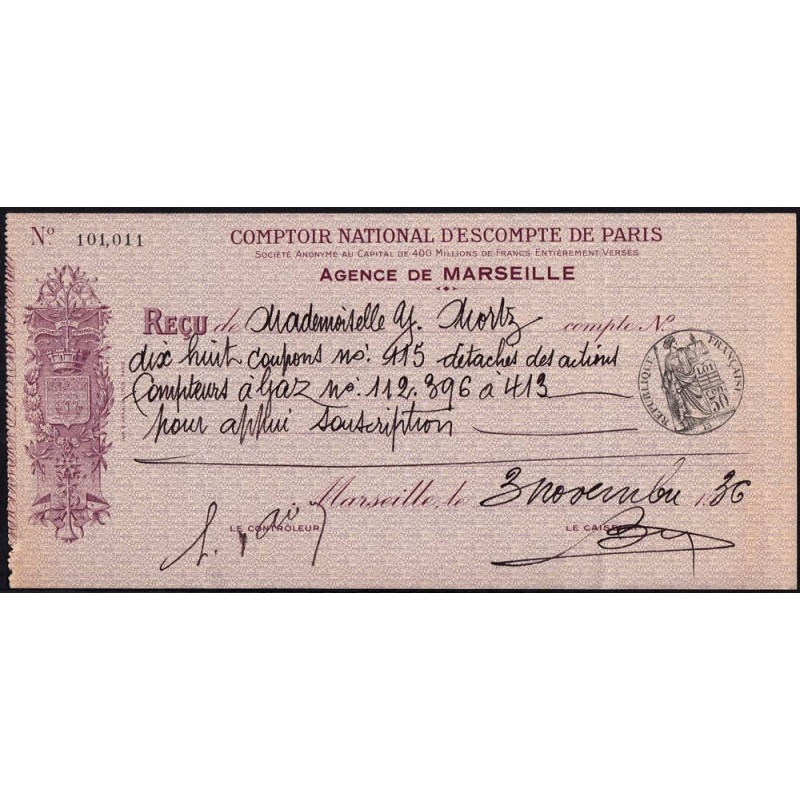 Nº 101,011
COMPTOIR NATIONAL D'ESCOMPTE DE PARIS
SOCIÉTÉ ANONYME AU CAPITAL DE 400 MILLIONS DE FRANCS ENTIÈREMENT VERSÉS
AGENCE DE MARSEILLE
REÇU de Mademoiselle Y. Mortz compte Nº
dix huit coupons nº. 115 détachés des actions
Compteurs à Gaz nº. 112.396 à 413
pour appui souscription
RÉPUBLIQUE FRANÇAISE
LOI
50
Marseille, le 3 novembre 1936
LE CONTRÔLEUR
LE CAISSIER